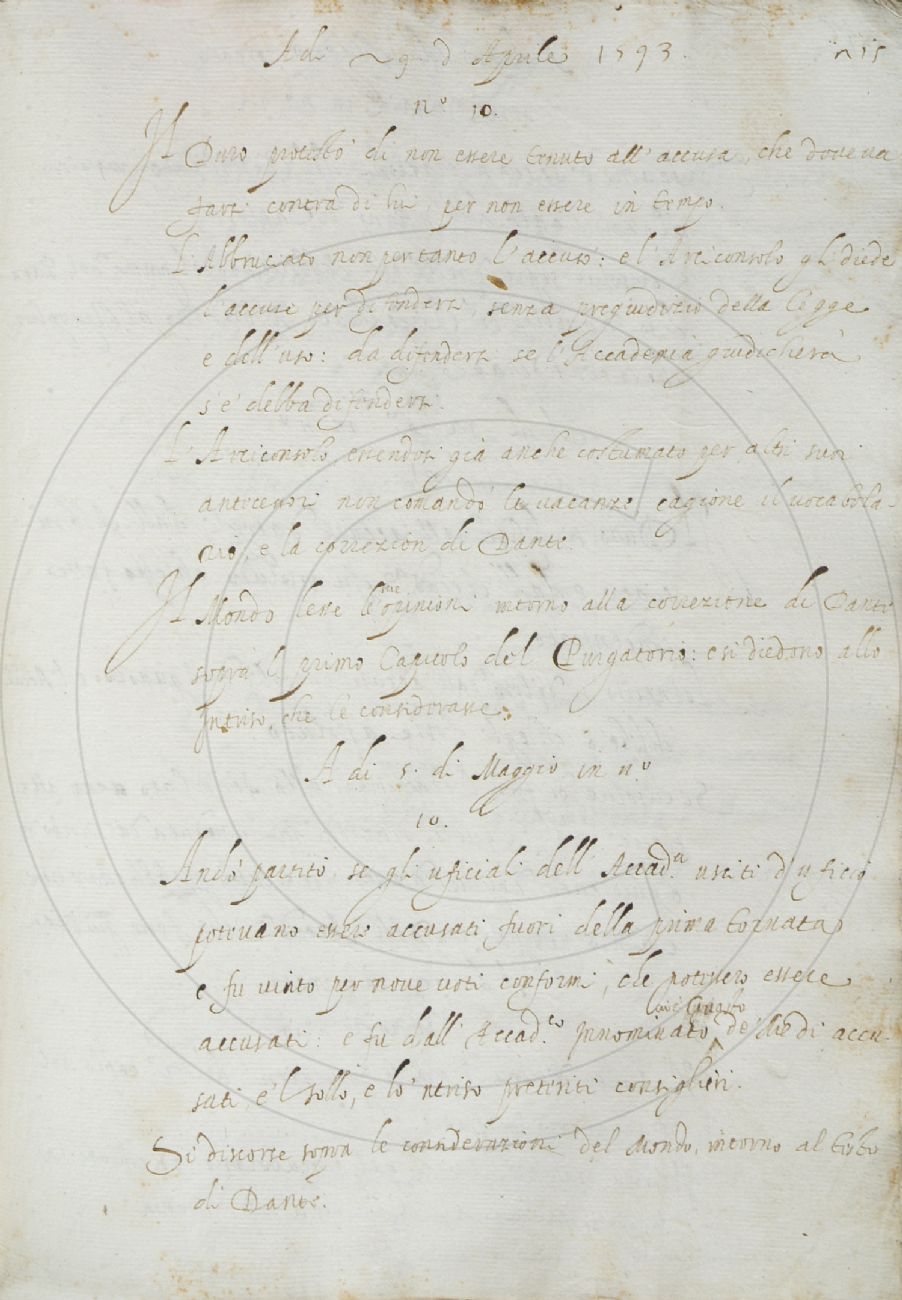 Adi 29 d Aprile 1593. 115
n.º 10.
Il Duro protestò di non essere tenuto all'accusa, che doveva
farsi contra di lui, per non essere in tempo.
L'Abbruciato non per tanto l'accusò: e l'Arciconsolo gli diede
l'accuse per difendersi senza pregiudizio della legge
e dell'uso: da difendersi se l'Accademia giudicherà
s'e' debba difendersi.
L'Arciconsolo, essendosi già anche costumato per altri suoi
antecessori non comandò le vacanze, cagione il vocabola-
rio, e la correzion di Dante.
Il Mondo lesse le sue opinioni intorno alla correzione di Dante
sopra 'l primo Capitolo del Purgatorio: e si diedono allo
'ntriso, che le considerasse.
A di 5. di Maggio in n.º
10.
Andò partito se gli uficiali dell'Accad.ª usciti d'uficio
potevano essere accusati fuori della prima tornata,
e fu vinto per nove voti conformi, che potessero essere
accusati: e fu dall'Accad.co Innominato de' due di accu-
sati, e 'l sollo, e lo 'ntriso preteriti consiglieri.
Si discorse sopra le considerazioni del Mondo, intorno al testo
di Dante.